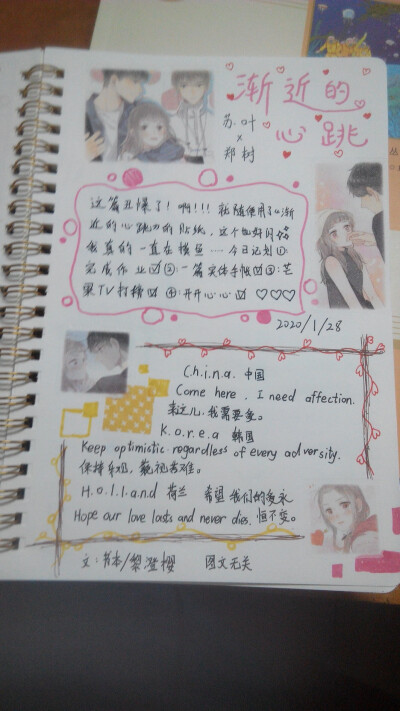 渐近的
心跳
苏叶
×
郑树
这篇丑爆了！啊！！！就随便用了心渐
近的心跳为的贴纸，这个也好闪
我真的一直在摸鱼····今日计划①:
完成作业☑②:一篇实体手帐☑③:芒
果TV打榜☑④:开开心心☑ ♡♡♡
2020/1/28
C.h.i.n.a. 中国
Come here . I need affection.
来这儿，我需要爱。
K.o.r.e.a 韩国
Keep optimistic regardless of every adversity.
保持乐观，藐视苦难。
H.o.l.l.a.n.d 荷兰 希望我们的爱永
Hope our love lasts and never dies. 恒不变。
文:书本/黎澄樱 图文无关